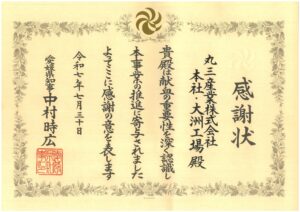 感謝状
丸三産業株式会社
本社・大洲工場 殿
貴殿は献血の重要性を深く認識し
本事業の推進に寄与されました
よってここに感謝の意を表します
令和七年七月三十日
愛媛県知事 中村時広